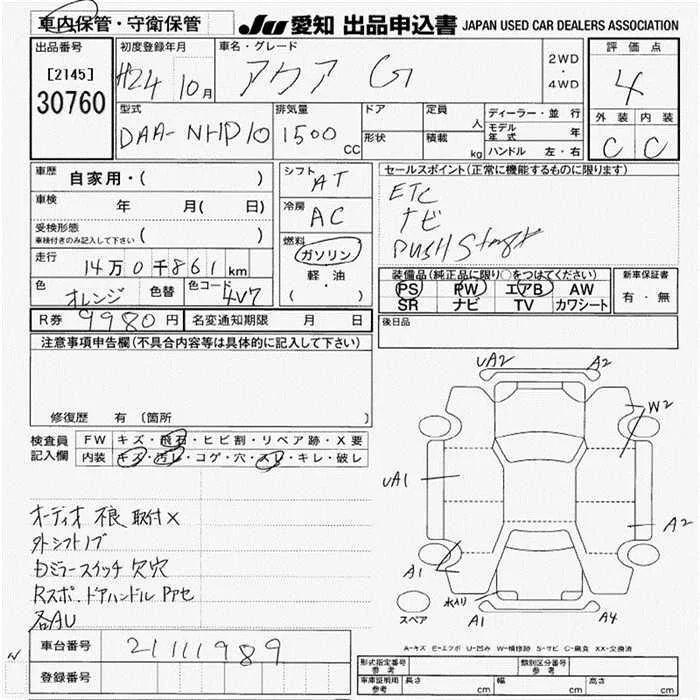 車内保管・守衛保管 JU 愛知 出品申込書 JAPAN USED CAR DEALERS ASSOCIATION
出品番号 初度登録年月 車名・グレード 2WD・4WD 評価点
[2145] H24 10月 アクア G 4
30760
型式 排気量 ドア 定員 人 ディーラー・並行 外装 内装
DAA-NHP10 1500CC 形状 積載 kg モデル年式 年 C C
ハンドル 左・右
車歴 自家用・( ) シフト AT セールスポイント(正常に機能するものに限ります)
車検 年 月( 日) 冷房 AC ETC
ナビ
受検形態 車検付きのみ記入して下さい ( ) 燃料 ガソリン PUSH Start
走行 14万0千861km 軽油 装備品(純正品に限り○をつけてください) 新車保証書
色 オレンジ 色替 色コード 4V7 ( ・ ) PS PW エアB AW 有・無
SR ナビ TV カワシート
R券 9980円 名変通知期限 月 日 後日品
注意事項申告欄(不具合内容等は具体的に記入して下さい)
修復歴 有 〔箇所 〕
検査員 FW キズ・飛石・ヒビ割・リペア跡・X要
記入欄 内装 キズ・汚レ・コゲ・穴・スレ・キレ・破レ
UA2 A2
W2
UA1
A2
A1
水入り
A1 A4
スペア
オーディオ 不良 取付×
外シフトノブ
Dミラースイッチ 欠穴
Rスポ.ドアハンドル Pアセ
各AU
A-キズ E-エクボ U-凹み W-補修跡 S-サビ C-腐食 XX-交換済
車台番号 21111989
登録番号
形式指定番号 参考 類別区分番号 参考
車庫証明用 参考 長さ cm 幅 cm 高さ cm